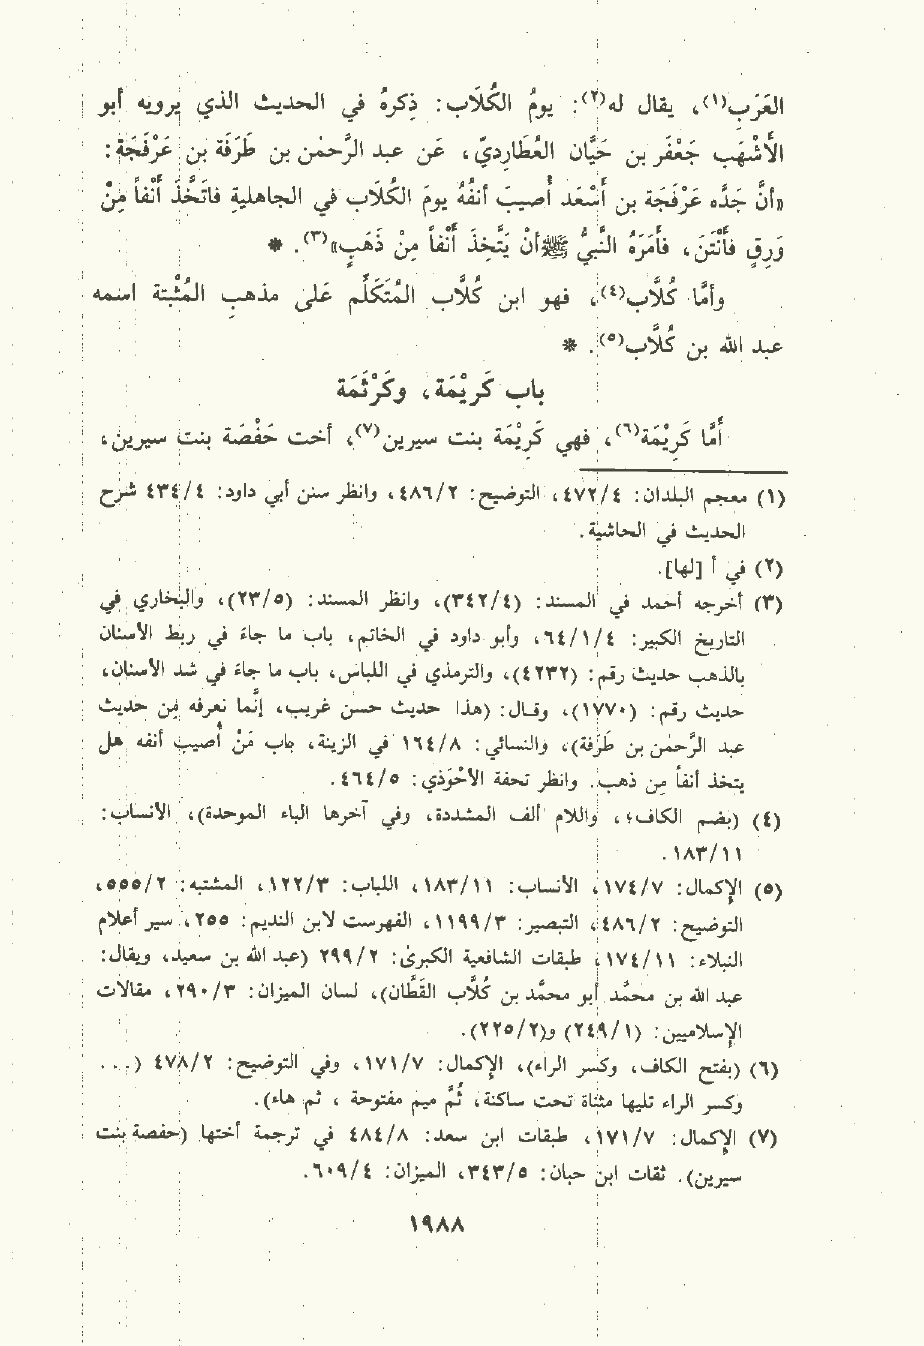 العَرَبِ(١)، يقال له(٢): يومُ الكُلَابِ: ذِكرُهُ في الحديث الذي يرويه أبو
الأَشْهَبِ جَعْفَر بن حَيَّانَ العُطَارِديّ، عَنَ عبد الرَّحمٰن بن طَرَفَةَ بن عَرْفَجَةَ:
«أَنَّ جَدَّه عَرْفَجَةَ بن أَسْعَد أُصيبَ أنفُهُ يومَ الكُلَاب في الجاهليةِ فاتَّخذَ أَنْفاً مِنْ
وَرِقٍ فأَنْتَنَ، فأَمَرَهُ النَّبيُّ ﷺ أنْ يَتَّخِذَ أَنْفاً مِنْ ذَهَبٍ»(٣). *
وأمَّا كُلَّاب(٤)، فهو ابن كُلَّاب المُتَكَلِّم عَلى مذهبِ المُثْبتَة اسمه
عبد الله بن كُلَّاب(٥). *
باب كَرِيْمَة، وكَرْثَمَة
أمَّا كَرِيْمَة(٦)، فهي كَرِيْمَة بنت سيرين(٧)، أخت حَفْصَة بنت سيرين،
(١) معجم البلدان: ٤/٤٧٢، التوضيح: ٢/٤٨٦، وانظر سنن أبي داود: ٤/٤٣٤ شرح
الحديث في الحاشية.
(٢) في أ [لها].
(٣) أخرجه أحمد في المسند: (٤/٣٤٢)، وانظر المسند: (٥/٢٣)، والبخاري في
التاريخ الكبير: ٤/١/٦٤، وأبو داود في الخاتم، باب ما جاءَ في ربط الأسنان
بالذهب حديث رقم: (٤٢٣٢)، والترمذي في اللباس، باب ما جاءَ في شد الأسنان،
حديث رقم: (١٧٧٠)، وقال: (هذا حديث حسن غريب، إنَّما نعرفه مِن حديث
عبد الرَّحمٰن بن طَرَفة)، والنسائي: ٨/١٦٤ في الزينة، باب مَنْ أُصيب أنفه هل
يتخذ أنفاً مِن ذهب. وانظر تحفة الأحْوَذي: ٥/٤٦٤.
(٤) (بضم الكاف؛، واللام ألف المشددة، وفي آخرها الباء الموحدة)، الأنساب:
١١/١٨٣.
(٥) الإكمال: ٧/١٧٤، الأنساب: ١١/١٨٣، اللباب: ٣/١٢٢، المشتبه: ٢/٥٥٥،
التوضيح: ٢/٤٨٦، التبصير: ٣/١١٩٩، الفهرست لابن النديم: ٢٥٥، سير أعلام
النبلاء: ١١/١٧٤، طبقات الشافعية الكبرىٰ: ٢/٢٩٩ (عبد الله بن سعيد، ويقال:
عبد الله بن محمَّد أبو محمَّد بن كُلَّاب القَطَّان)، لسان الميزان: ٣/٢٩٠، مقالات
الإسلاميين: (١/٢٤٩) و(٢/٢٢٥).
(٦) (بفتح الكاف، وكسر الراء)، الإكمال: ٧/١٧١، وفي التوضيح: ٢/٤٧٨ (...
وكسر الراء تليها مثناة تحت ساكنة، ثُمَّ ميم مفتوحة ، ثم هاء).
(٧) الإكمال: ٧/١٧١، طبقات ابن سعد: ٨/٤٨٤ في ترجمة أختها (حفصة بنت
سيرين). ثقات ابن حبان: ٥/٣٤٣، الميزان: ٤/٦٠٩.
١٩٨٨